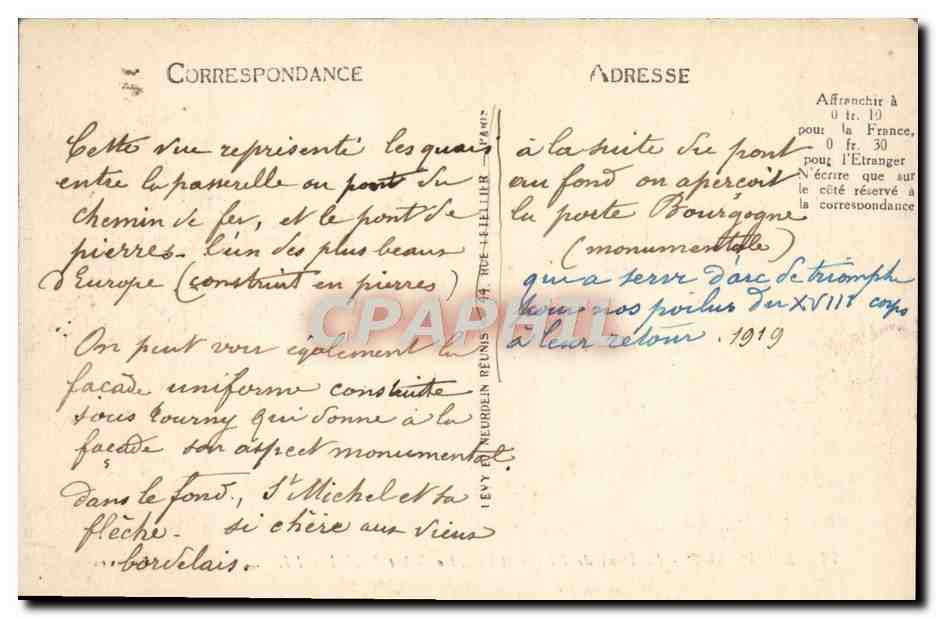 CORRESPONDANCE
Cette vue representé les quais
entre la passerelle ou pont du
chemin de fer, et le pont de
pierres - l'un des plus beaux
d'Europe (construit en pierres)
On peut voir également la
façade uniforme construite
sous Tourny qui donne à la
façade son aspect monumental.
dans le fond, St Michel et sa
flèche - si chère aux vieux
bordelais.
LEVY ET NEURDEIN REUNIS 44, RUE LETELLIER - PARIS
ADRESSE
Affranchir à
0 fr. 10
pour la France,
0 fr. 30
pour l'Etranger
N'écrire que sur
le côté réservé à
la correspondance
à la suite du pont
au fond on aperçoit
la porte Bourgogne
(monumentale)
qui a servi d'arc de triomphe
pour nos poilus du XVIIIe corps
à leur retour. 1919
CPAPHIL